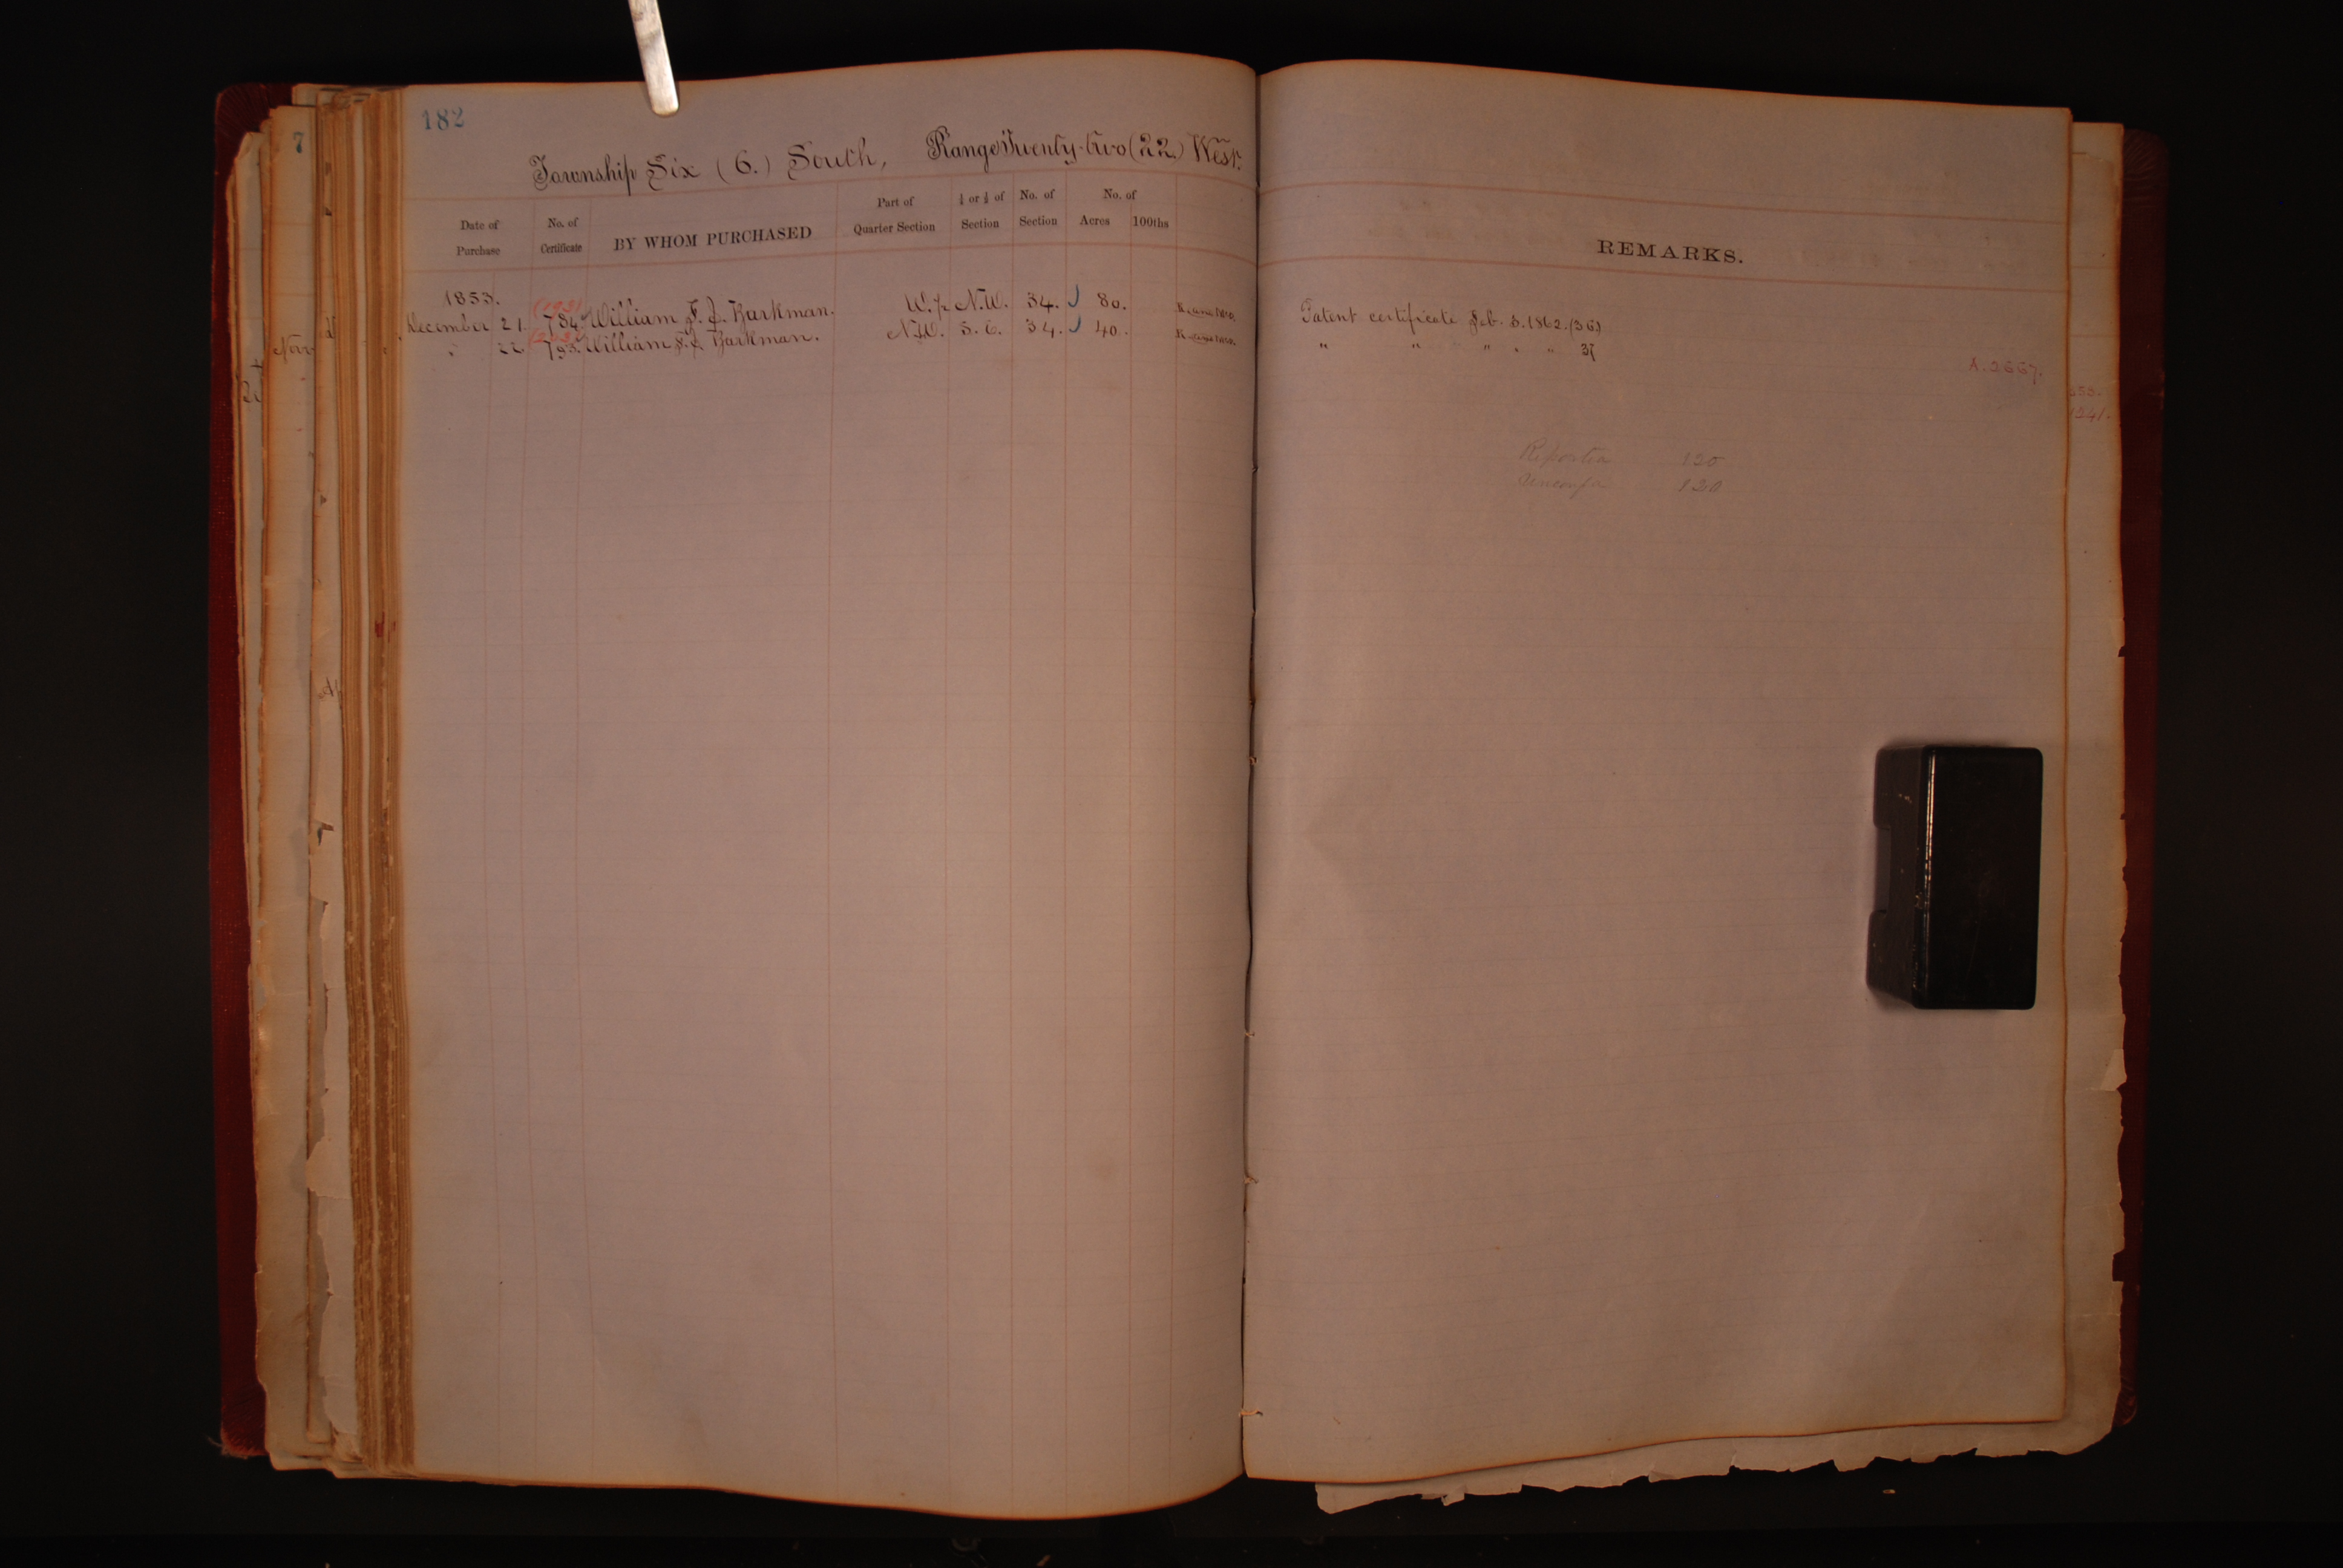 182
7
Township Six (6.) South, Range Twenty-two (22.) West.
Date of Purchase
No. of Certificate
BY WHOM PURCHASED
Part of Quarter Section
½ or ¼ of Section
No. of Section
No. of Acres 100ths
REMARKS.
1853.
December 21. 784 William F. J. Barkman. W. ½ N.W. 34. 80. Patent certificate Feb. 5. 1862. (36)
" 22 793. William F. J. Barkman. N.W. S.E. 34. 40. " " " " " 37
A. 2667.
120
120
Nov